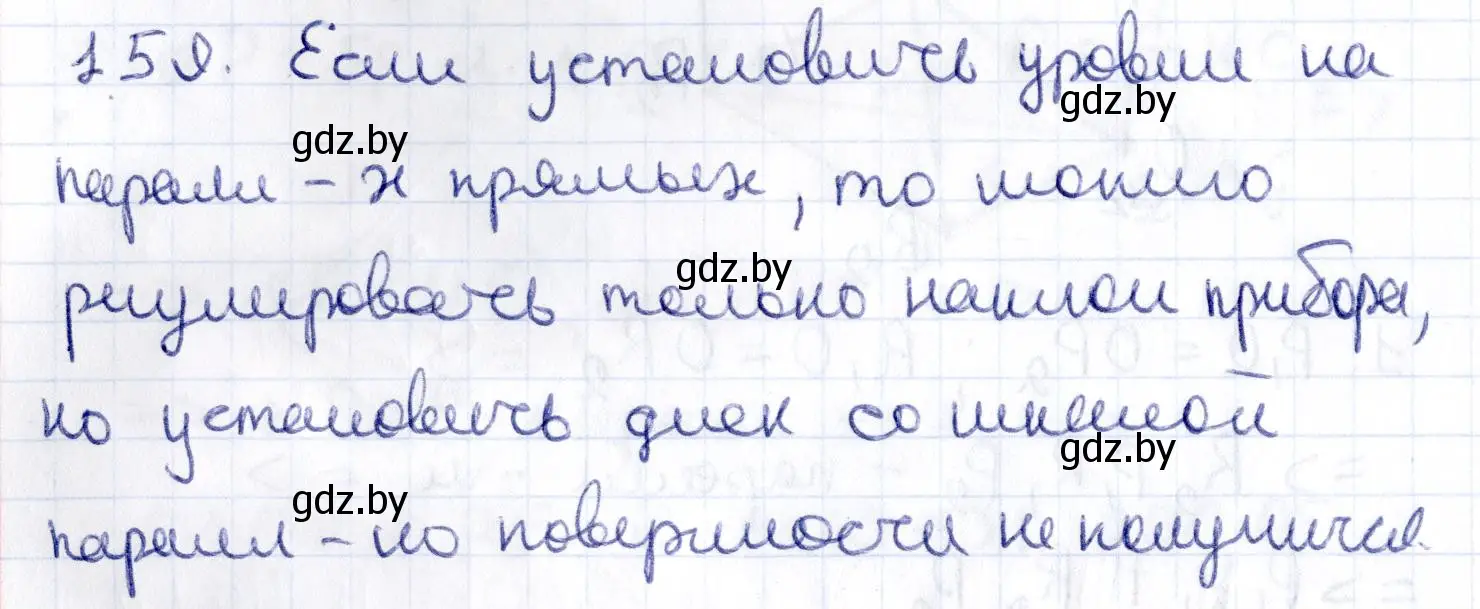 159. Если установить уровни на
gdz.by
gdz.by
паралл-х прямых, то можно
gdz.by
регулировать только наклон прибора,
но установить диск со шкалой
gdz.by
gdz.by
паралл-но поверхности не получится.